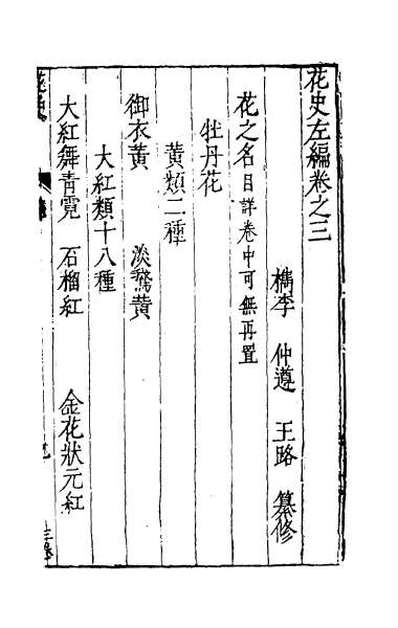 花史左編卷之三
檇李　仲遵　王路　纂修
花之名目詳卷中可無再置
牡丹花
黄類二種
御衣黄　淡鵞黄
大紅類十八種
大紅舞青霓　石榴紅　金花狀元紅